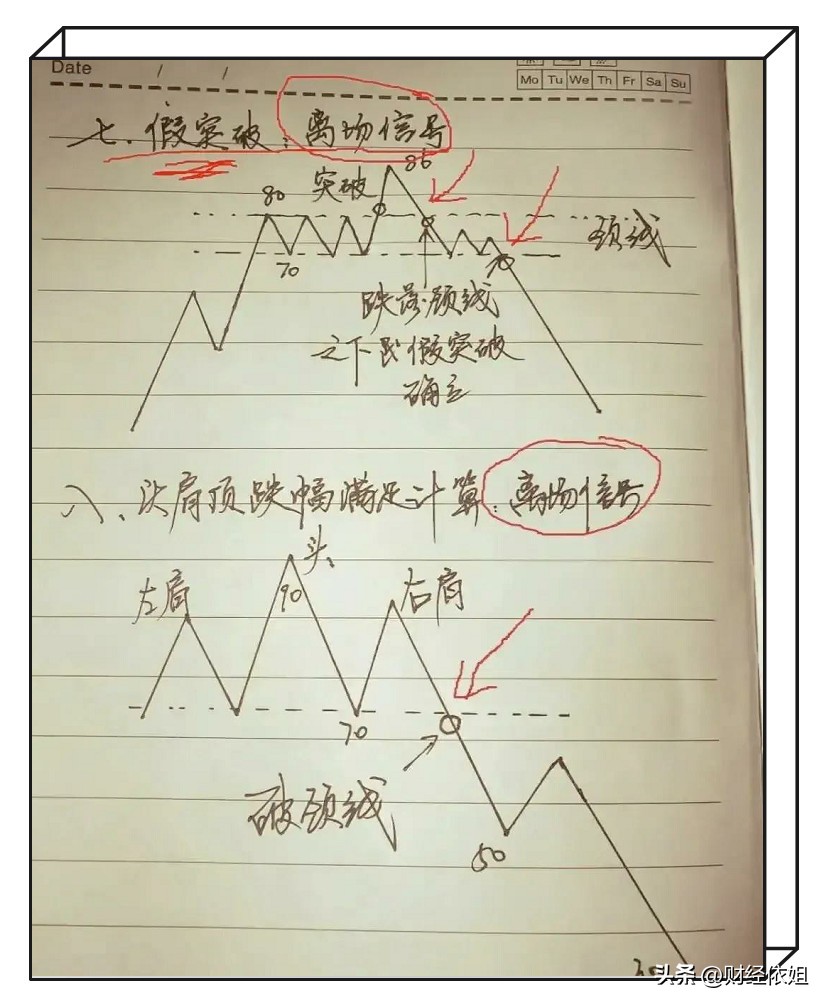 Date / /
Mo Tu We Th Fr Sa Su
七、假突破：离场信号
86
80 突破
颈线
70 70
跌落颈线
之下民假突破
确立
八、头肩顶跌幅满足计算：离场信号
头
左肩 90 右肩
70
破颈线
50
头条 @财经依姐